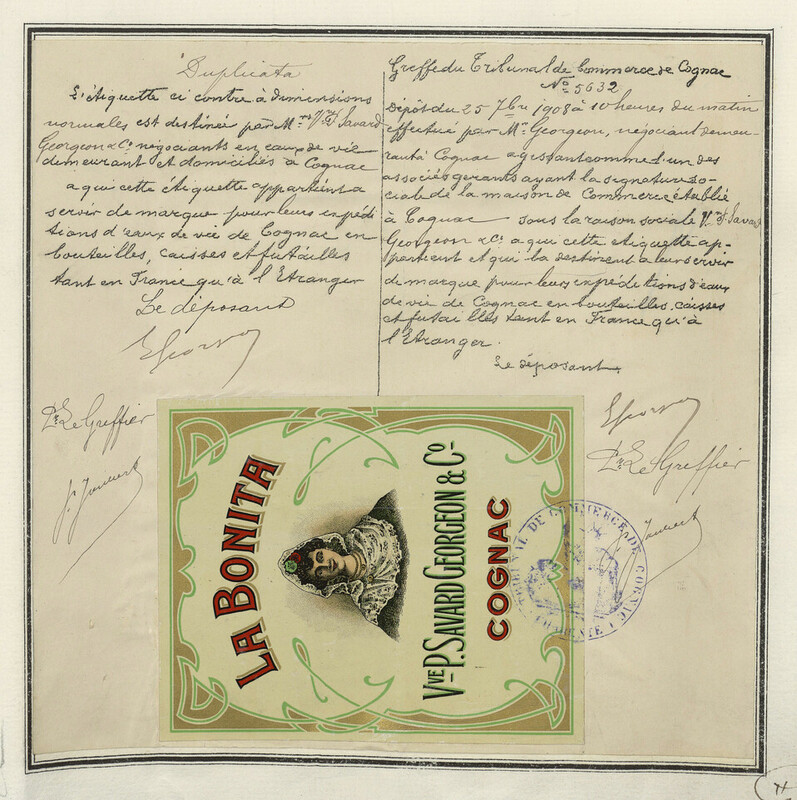 Duplicata
L'étiquette ci contre à dimensions
normales est destinée par Mrs Vve P. Savard
Georgeon & Co négociants en eaux de vie
demeurant et domiciliés à Cognac
a qui cette étiquette appartient a
servir de marque pour leurs expédi
tions d'eaux de vie de Cognac en
bouteilles, caisses et futailles
tant en France qu'à l'Etranger
Le déposant
Pr Le Greffier
Greffe du Tribunal de Commerce de Cognac
No 5632
Dépôt du 25 7bre 1908 à 10 heures du matin
effectué par Mr Georgeon, négociant demeu-
rant à Cognac agissant comme l'un des
associés gerants ayant la signature so-
ciale de la maison de Commerce établie
à Cognac sous la raison sociale Vve P. Savard
Georgeon & Co a qui cette etiquette ap-
partient et qui la destinent a leur servir
de marque pour leurs expéditions d'eaux
de vie de Cognac en bouteilles, caisses
et futailles tant en France qu'à
l'Etranger.
Le déposant
Pr Le Greffier
LA BONITA
Vve P. SAVARD GEORGEON & Co
COGNAC
TRIBUNAL DE COMMERCE DE COGNAC
CHARENTE